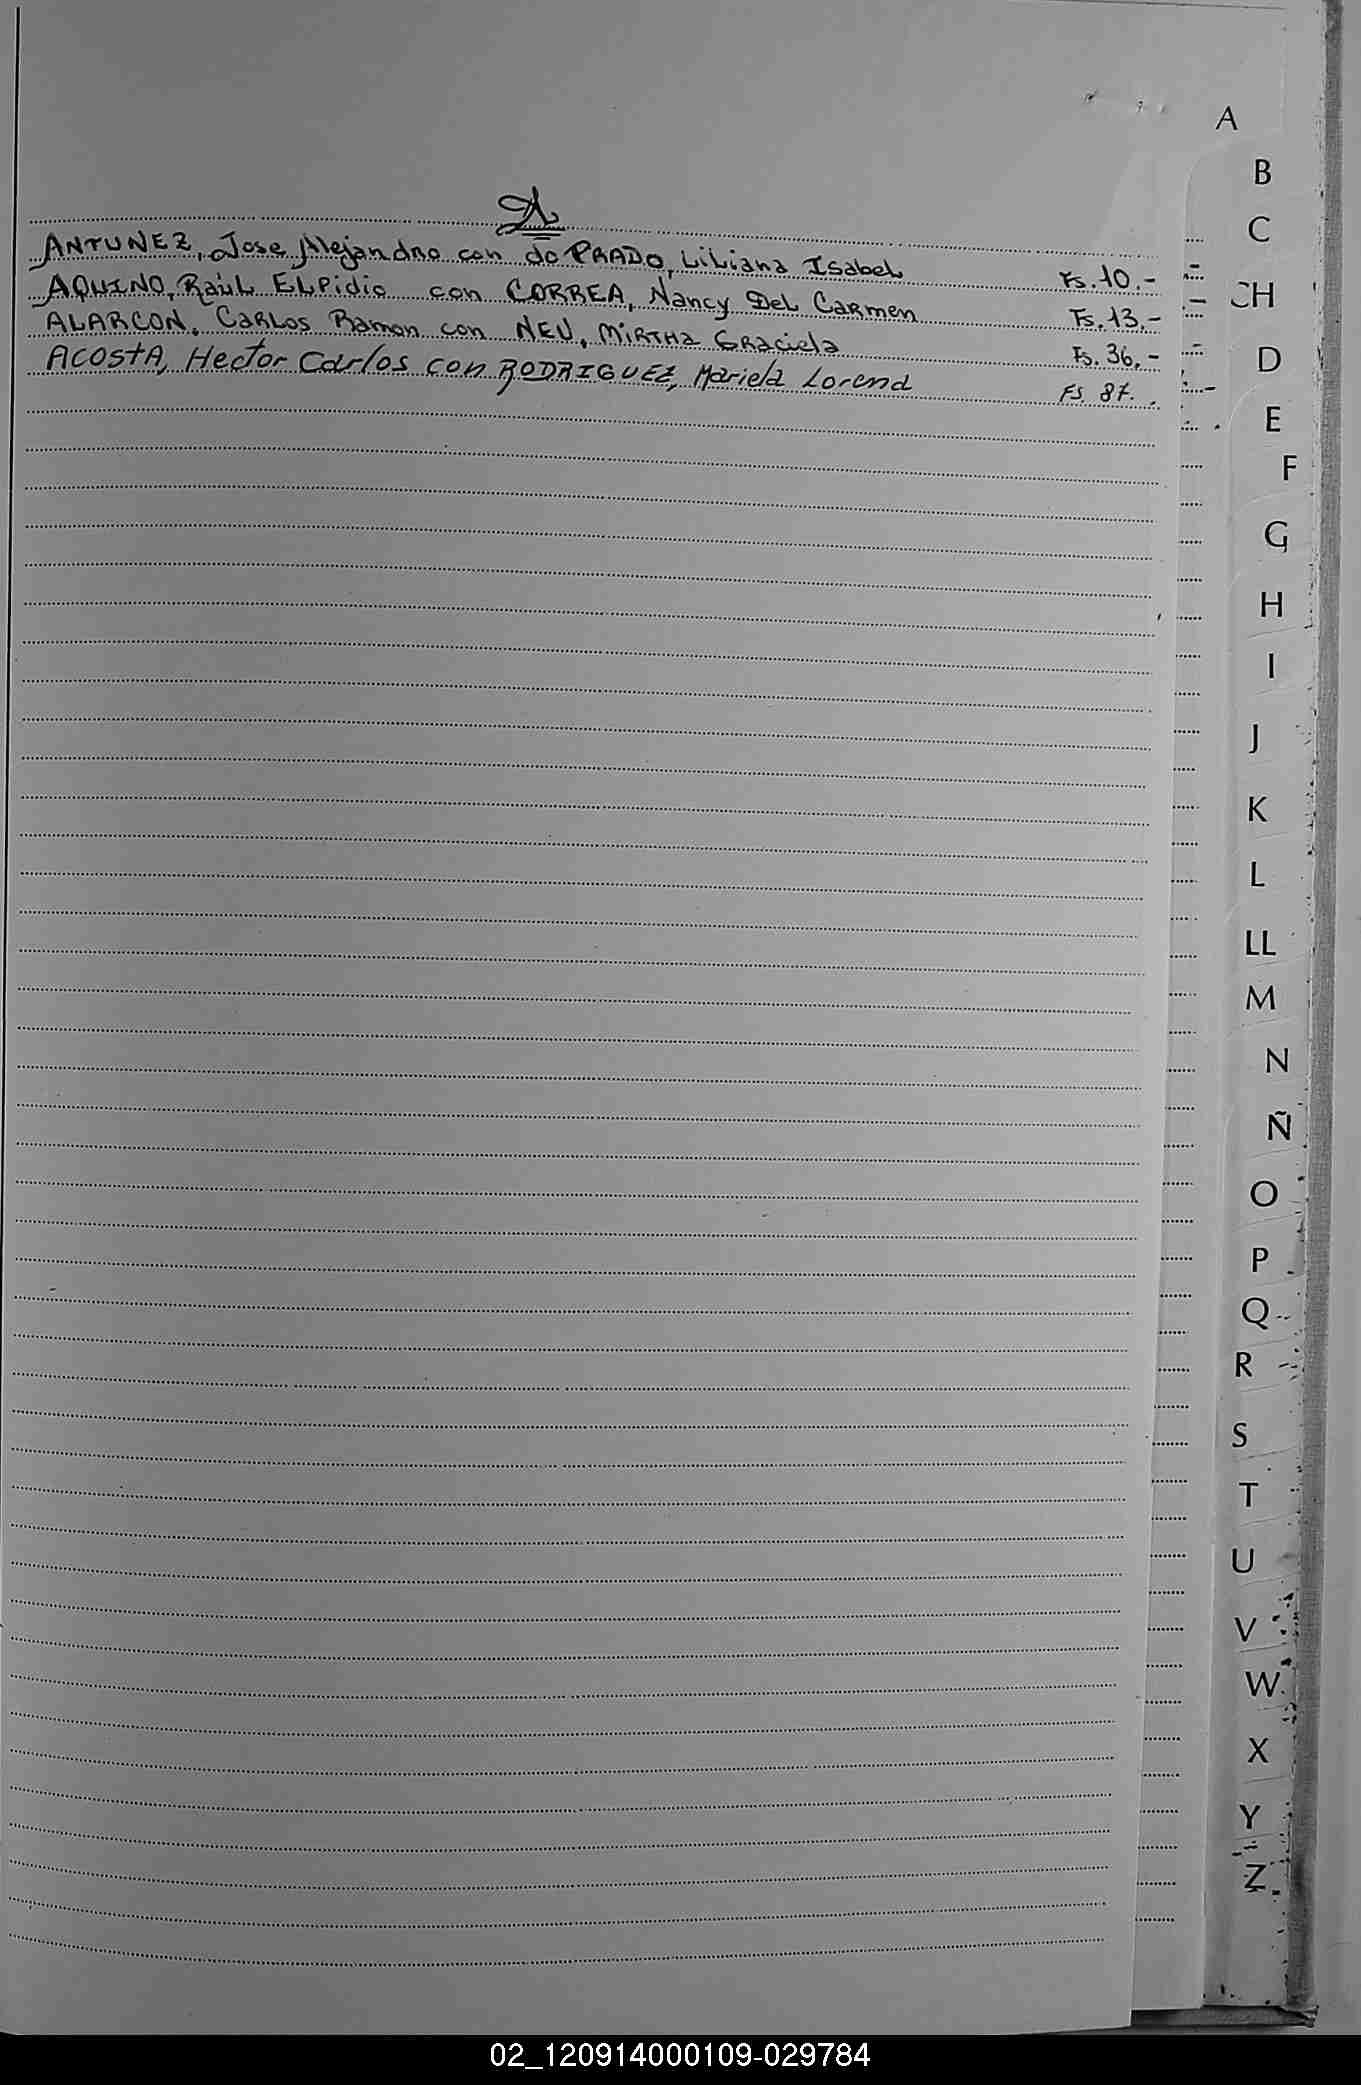 A
ANTUNEZ, Jose Alejandro con do PRADO, Liliana Isabel Fs. 10.-
AQUINO, Raúl ELPidio con CORREA, Nancy Del Carmen Fs. 13.-
ALARCON, Carlos Ramon con NEU, Mirtha Graciela Fs. 36.-
ACOSTA, Hector Carlos con RODRIGUEZ, Mariela Lorena Fs. 87.
A
B
C
CH
D
E
F
G
H
I
J
K
L
LL
M
N
Ñ
O
P
Q
R
S
T
U
V
W
X
Y
Z
02_120914000109-029784